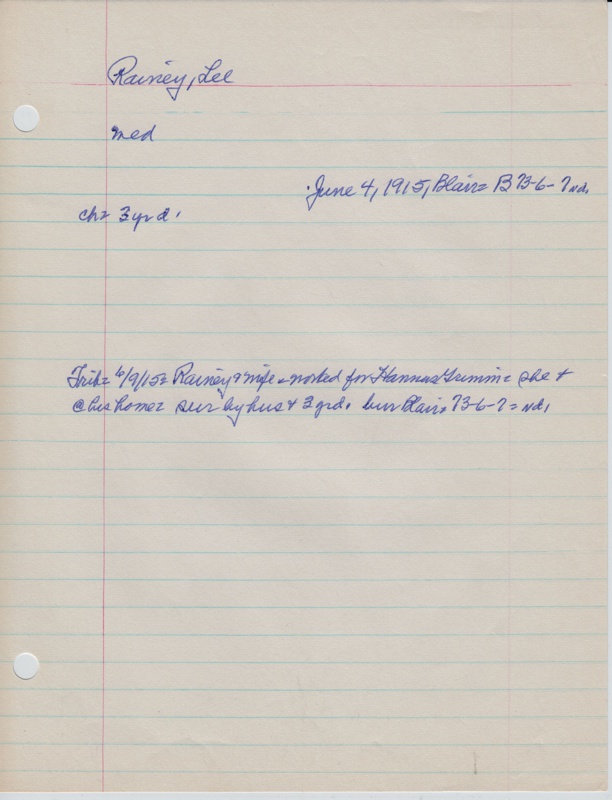 Rainey, Lee
med
June 4, 1915, Blair= B 73-6-7 nd,
ch= 3 yr d.
Trib= 6/9/15= Rainey & wife = worked for Hannus Grimm= she +
@ his home= sur by hus + 3 yrd. bur Blair, 73-6-7= nd,